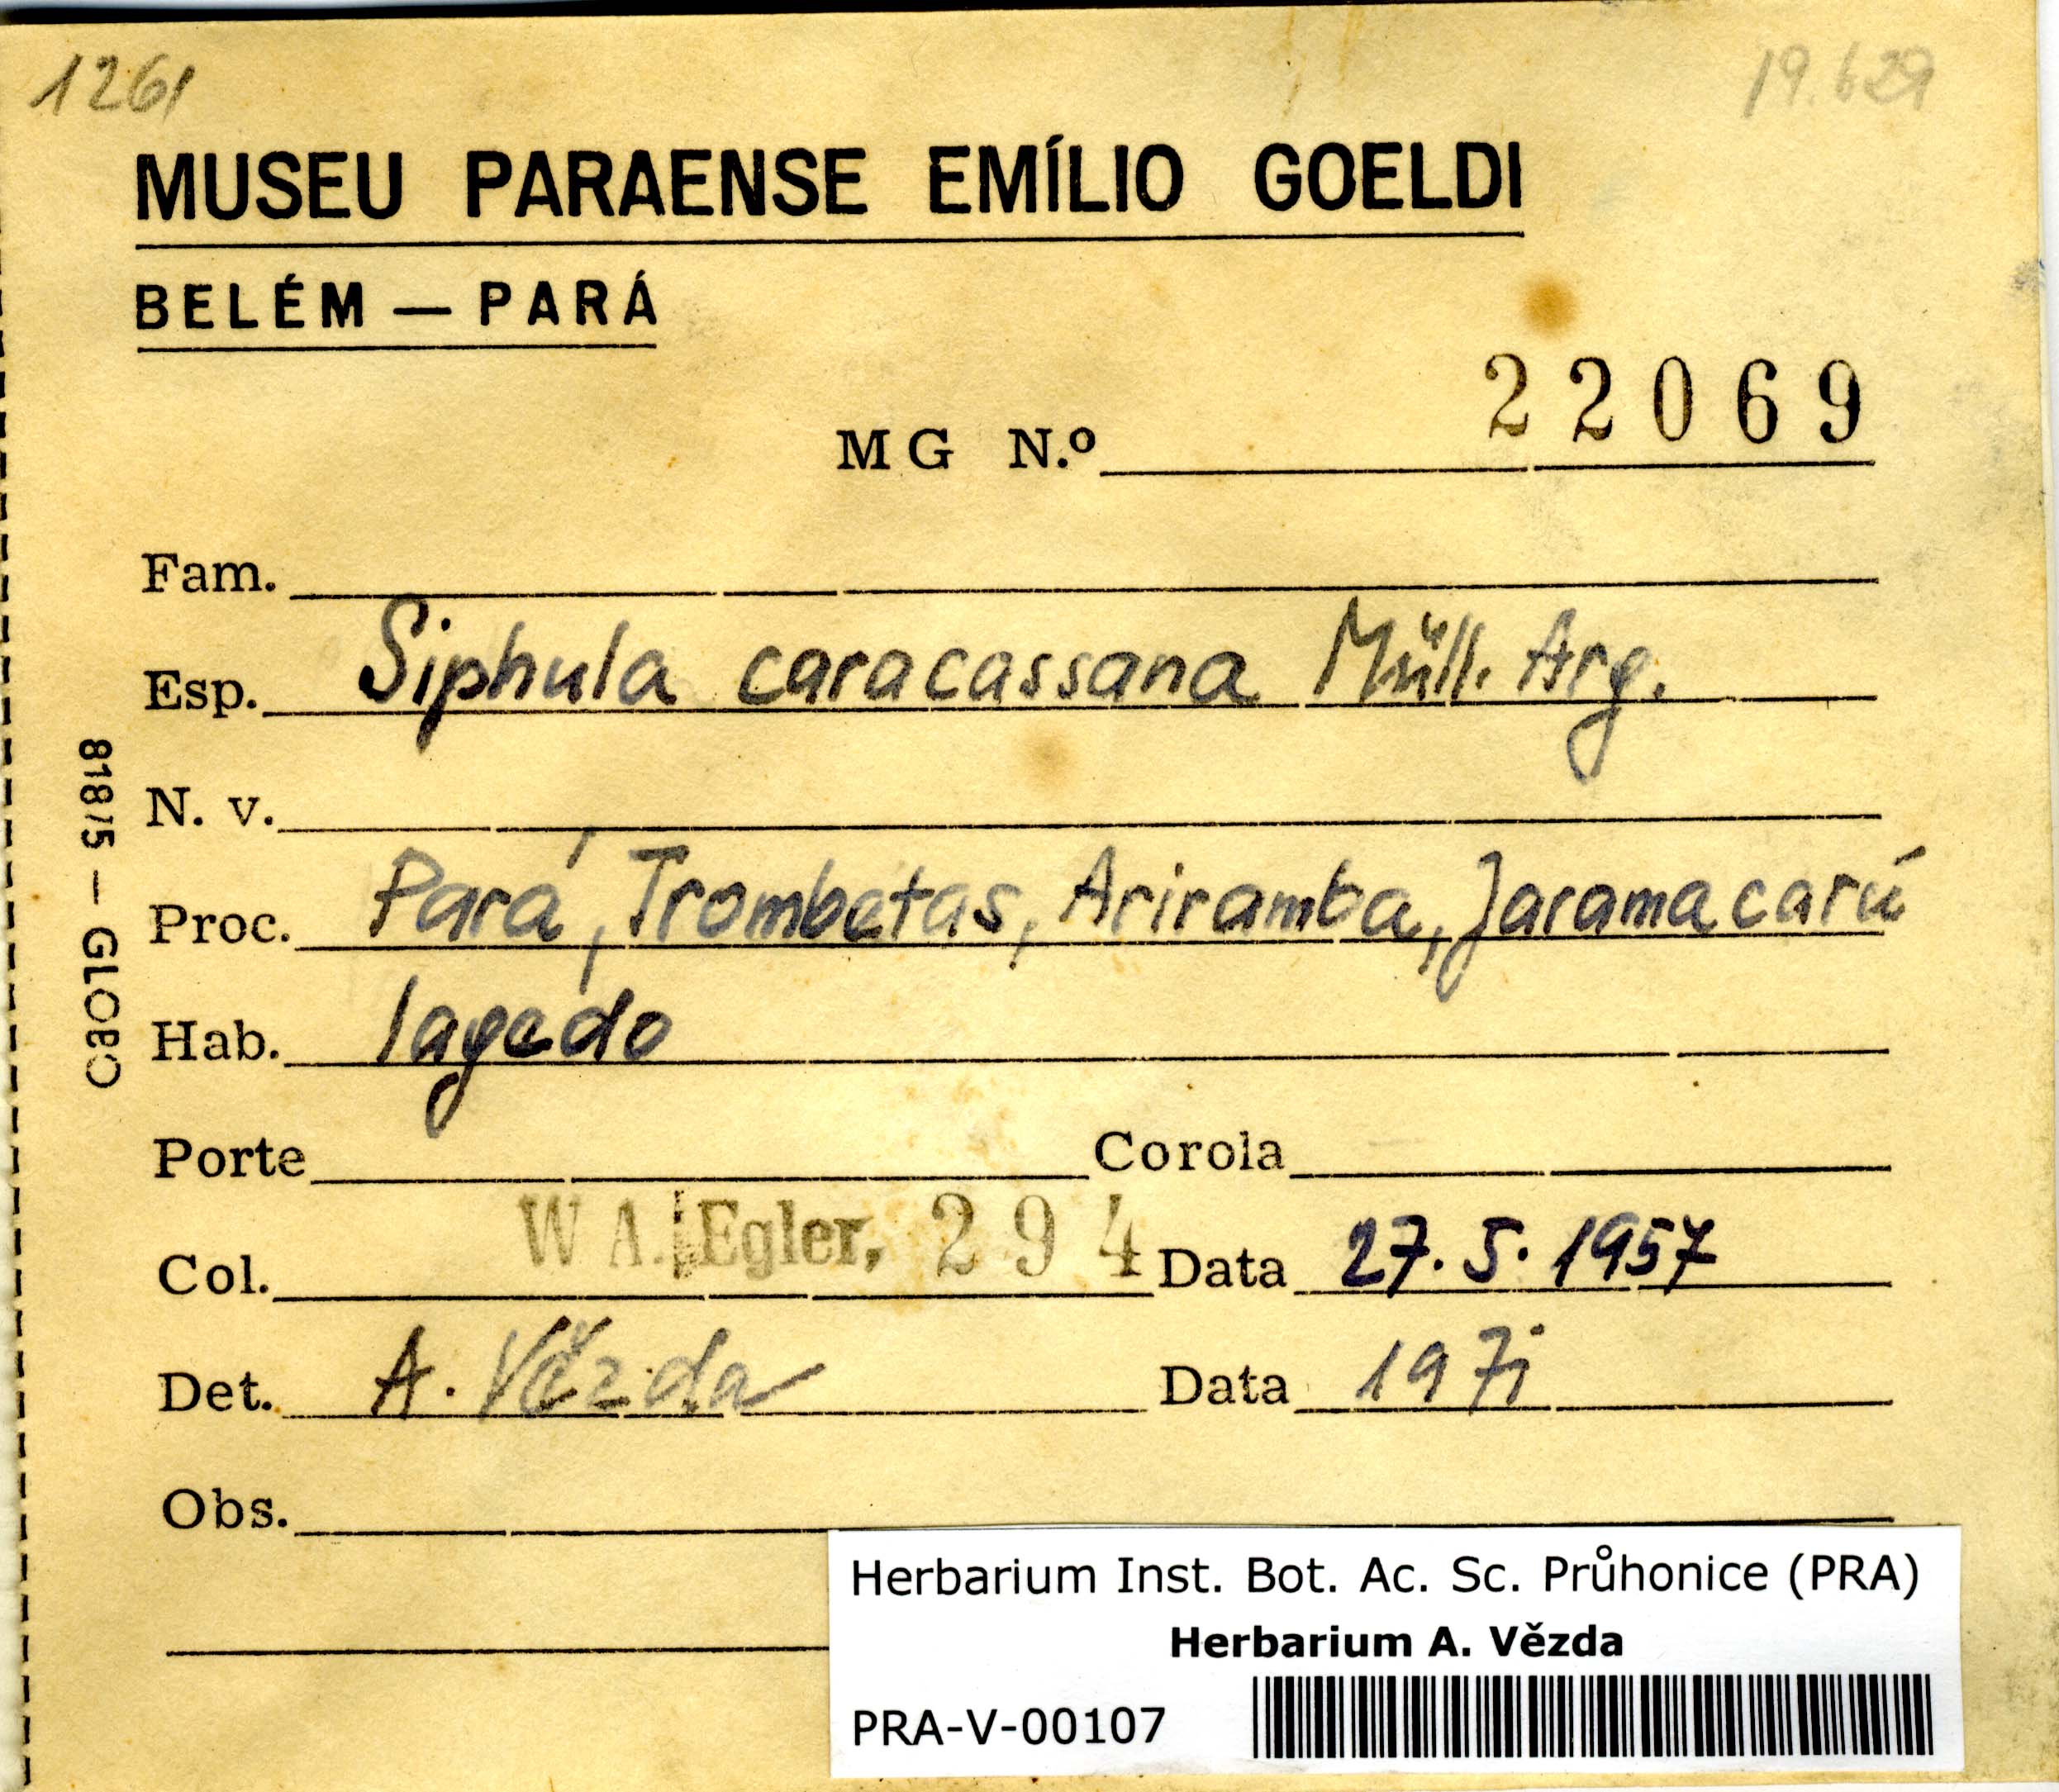 1261 19.629
MUSEU PARAENSE EMÍLIO GOELDI
BELÉM — PARÁ
MG N.º 22069
Fam.
Esp. Siphula caracassana Müll. Arg.
N. v.
Proc. Pará, Trombetas, Ariramba, Jaramacarú
Hab. lagedo
Porte Corola
Col. W A. Egler, 294 Data 27. 5. 1957
Det. A. Vězda Data 1971
Obs.
818/5 — GLOBO
Herbarium Inst. Bot. Ac. Sc. Průhonice (PRA)
Herbarium A. Vězda
PRA-V-00107